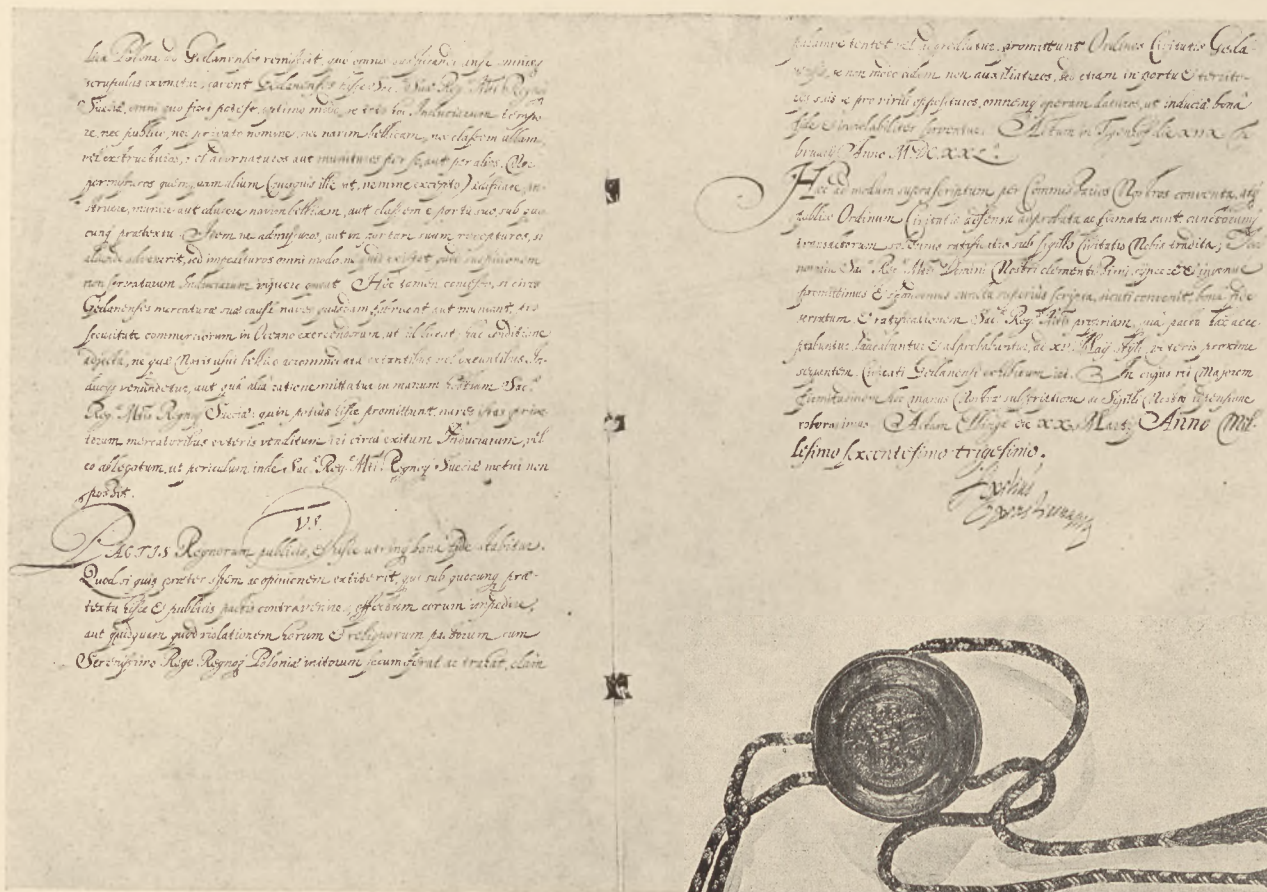 Polona Gedanenses remiserit, quo omnis
scrupulus eximatur, cavent Gedanenses hisce Sac. Suæ Reg. Mtti Regnoq
Sueciæ, omni quo fieri potest, optimo modo, se toto hoc Induciarum tempo
re, nec publico, nec privato nomine, nec navim bellicam, nec classem ullam
vel extructuros, vel adornaturos aut munituros per se, aut per alios. Nec
permissuros quemquam alium (cuiusquis ille sit, nemine excepto) ædificare in-
struere, munire aut educere navim bellicam, aut classem e portu suo, sub quo
cunq prætextu. Item nec admissuros, aut in portum suum recepturos, si
aliunde advenerit, sed impedituros omni modo, ne quid existat, quod suspicionem
non servatarum Induciarum injicere queat. Hoc tamen concesso, si cives
Gedanenses mercaturæ suæ causa naves quasdam fabricent aut muniant, pro
securitate commerciorum in Oceano exercendorum, ut id liceat, hac conditione
adjecta, ne qua Navis usui bellico accommodata extantibus vel exeuntibus In-
ducijs vendatur, aut qua alia ratione mittatur in manum hostium Sac.æ
Reg.æ Mttis Regnoq Sueciæ: quin potius hisce promittunt, naves istas priva-
torum mercatoribus exteris venditum iri circa exitum Induciarum, vel
eo ablegatum, ut periculum inde Sac.æ Reg.æ Mtti. Regnoq Sueciæ metui non
possit.
VI.
PACTIS Regnorum publicis, & hisce utrinq bona fide stabitur.
Quod si quis præter spem ac opinionem extiterit, qui sub quocunq præ-
textu hisce & publicis pactis contravenire, effectum eorum impedire,
aut quidquam quod violationem horum & reliquorum pactorum cum
Serenissimo Rege Regnoq Poloniæ initorum secum ferat ac trahat, clam
palamve tentet vel aggrediatur, promittunt Ordines Civitatis Geda-
nensis, se non modo eidem non auxiliaturos, sed etiam in portu & territo-
rio suis se pro virili opposituros, omnemq operam daturos, ut induciæ bona
fide & inviolabiliter serventur. Actum in Tygenhoff die XIIX Fe
bruarij Anno M.DC.XXX.
Hæc ad modum suprascriptum per Commissarios Nostros conventa, atq
publice Ordinum Civitatis assensu approbata ac firmata sunt, cunctorumq
transactorum solemnis ratificatio sub sigillo Civitatis Nobis tradita;
nomine Sac.æ Reg.æ Mttis Domini Nostri clementissimi &
promittimus & spondemus cuncta superius scripta, sicuti convenit, bona fide
servatum & ratificationem Sac.æ Reg.æ Mttis propriam, qua pacta hæc acce-
ptabuntur, laudabuntur & approbabuntur, ad XV. Maij styli veteris, proxime
sequentem, Civitati Gedanensi exhibitum iri. In cujus rei Majorem
firmitudinem hæc manus Nostræ subscriptione ac Sigilli Nostri
roboravimus. Actum Elbingæ die XX. Martij Anno Mil-
lesimo sexcentesimo trigesimo.
Axelius
Oxenstierna